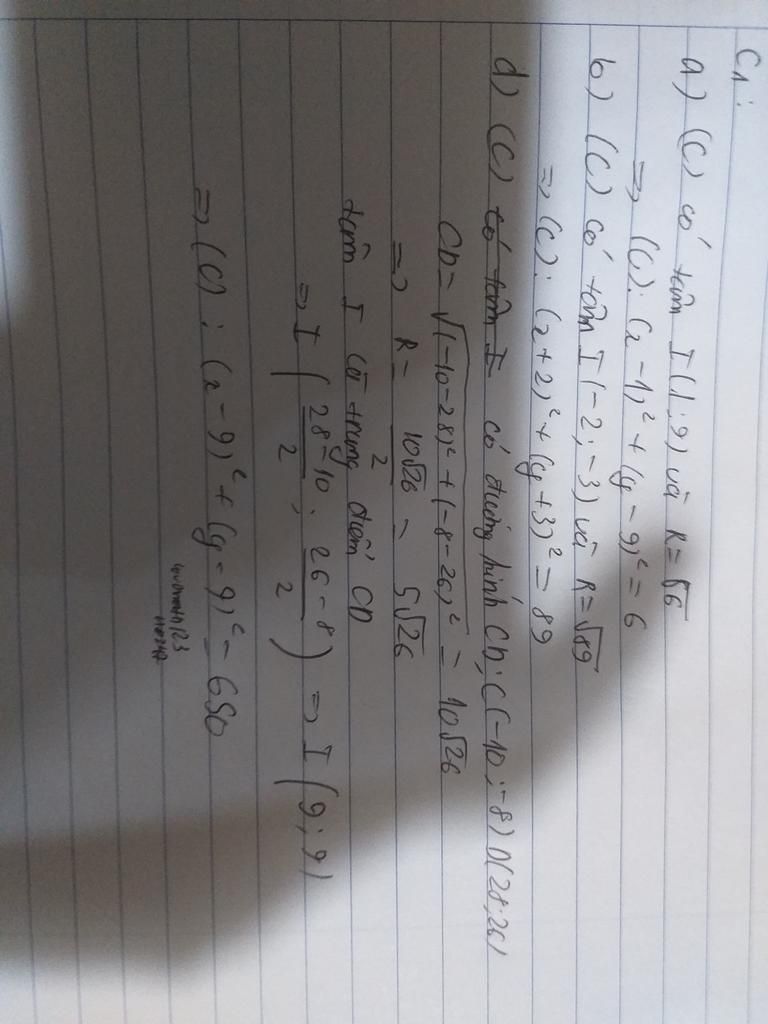 C1:
a) (C) có tâm I (1; 9) và R = √6
=> (C): (x - 1)² + (y - 9)² = 6
b) (C) có tâm I (-2; -3) và R = √89
=> (C): (x + 2)² + (y + 3)² = 89
d) (C) có tâm I có đường kính CD; C(-10; -8) D(28; 26)
CD = √(-10-28)² + (-8-26)² = 10√26
=> R = 10√26 / 2 = 5√26
tâm I là trung điểm CD
=> I (28-10 / 2 ; 26-8 / 2) => I (9; 9)
=> (C): (x - 9)² + (y - 9)² = 650